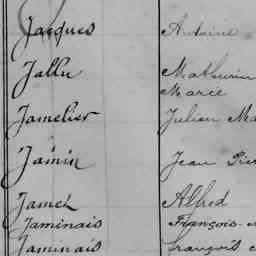 Jacques Antoine
Jallu Mathurin
Marie
Jamelier Julien Ma
Jamin Jean Pier
Jamet Alfred
Jaminais François
Jaminais françois